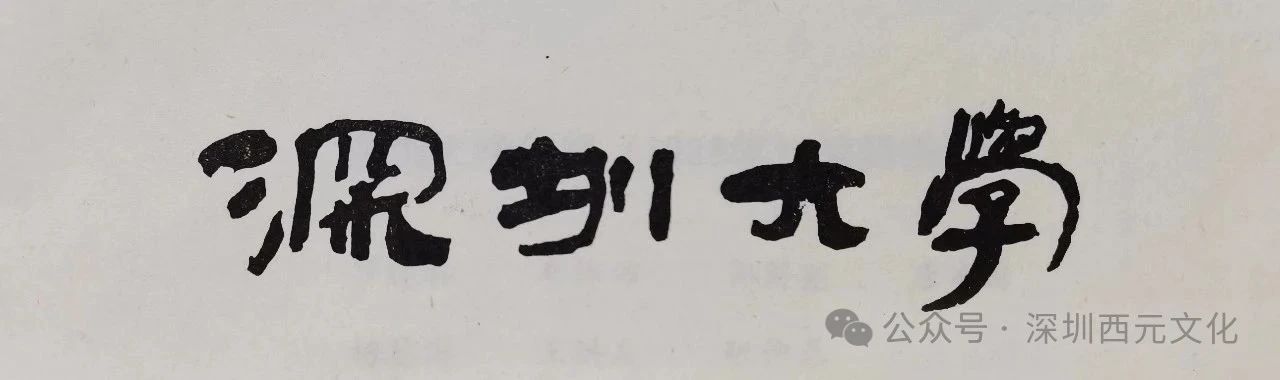 深圳大學
公众号·深圳西元文化